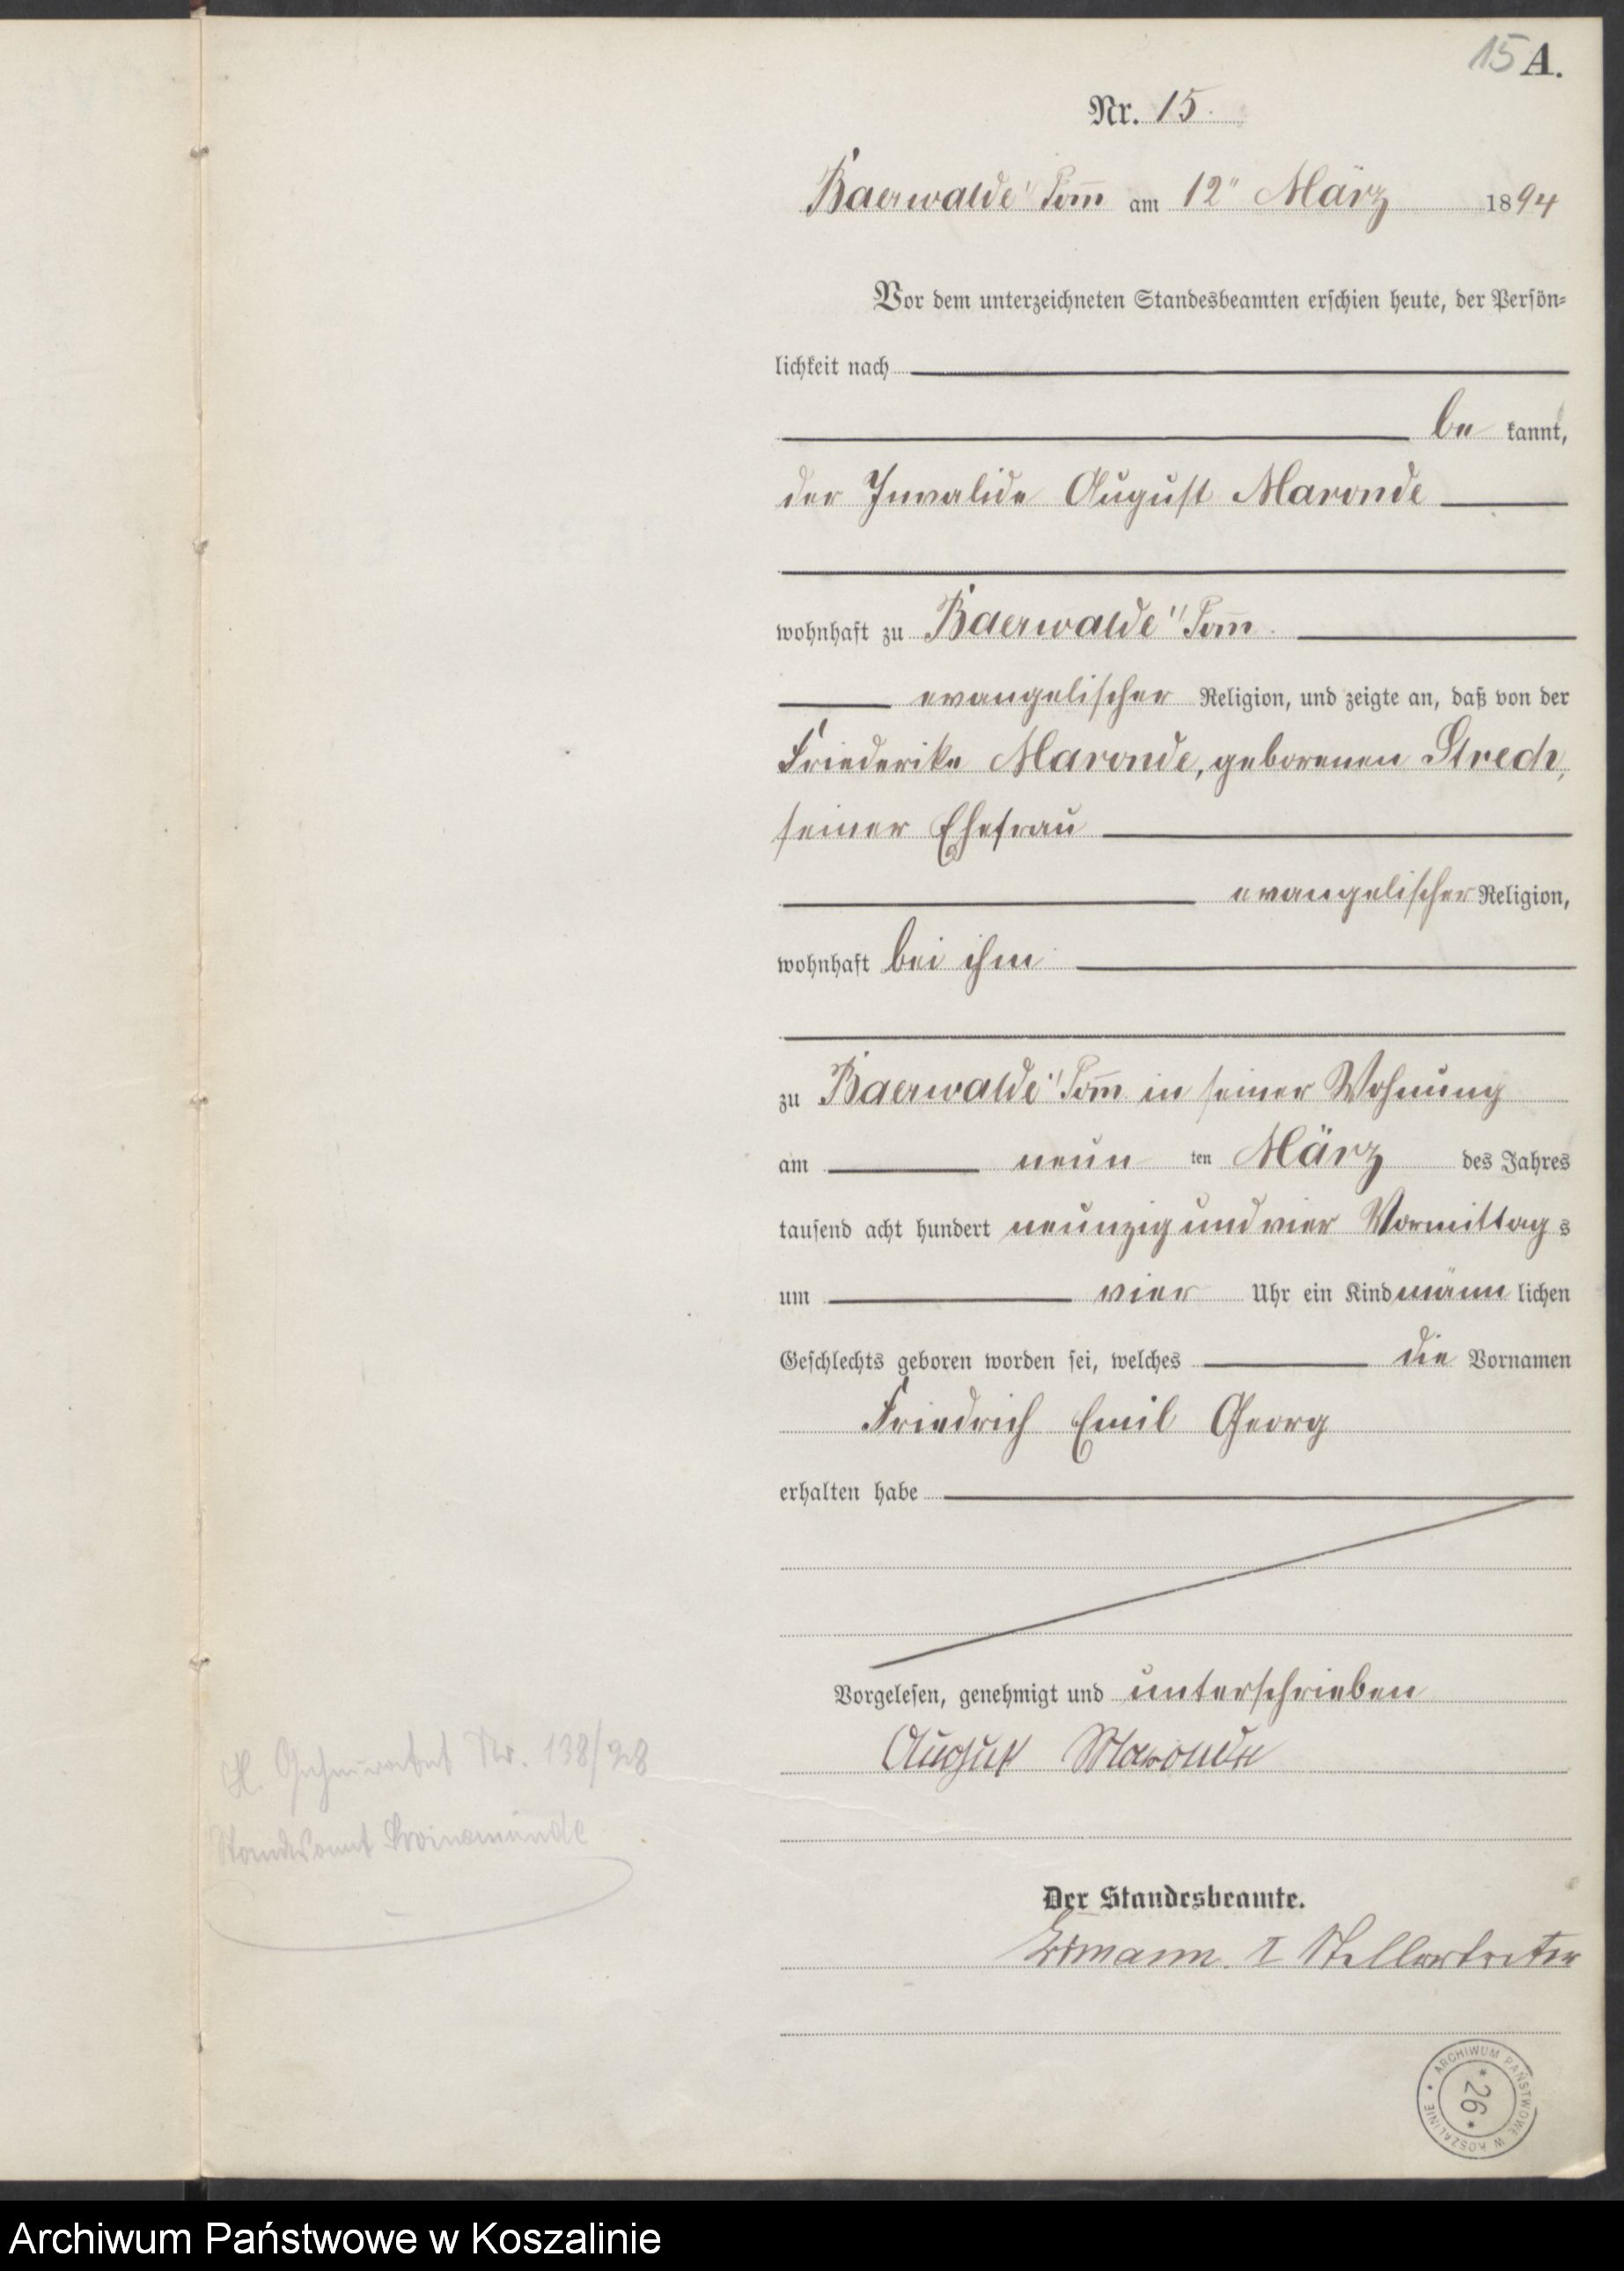 15 A.
Nr. 15.
Baerwalde i/Pom̄ am 12" März 1894
Vor dem unterzeichneten Standesbeamten erschien heute, der Persön-
lichkeit nach
be kannt,
der Invalide August Maronde
wohnhaft zu Baerwalde i/Pom̄.
evangelischer Religion, und zeigte an, daß von der
Friederike Maronde, geborenen Strech,
seiner Ehefrau
evangelischer Religion,
wohnhaft bei ihm
zu Baerwalde i/Pom̄ in seiner Wohnung
am neun ten März des Jahres
tausend acht hundert neunzig und vier Vormittag s
um vier Uhr ein Kind männ lichen
Geschlechts geboren worden sei, welches die Vornamen
Friedrich Emil Georg
erhalten habe
Vorgelesen, genehmigt und unterschrieben
August Maronde
H. Nr. 138/28
Standesamt Swinemünde
Der Standesbeamte.
I Stellvertreter
ARCHIWUM PAŃSTWOWE W KOSZALINIE
* 26 *
Archiwum Państwowe w Koszalinie